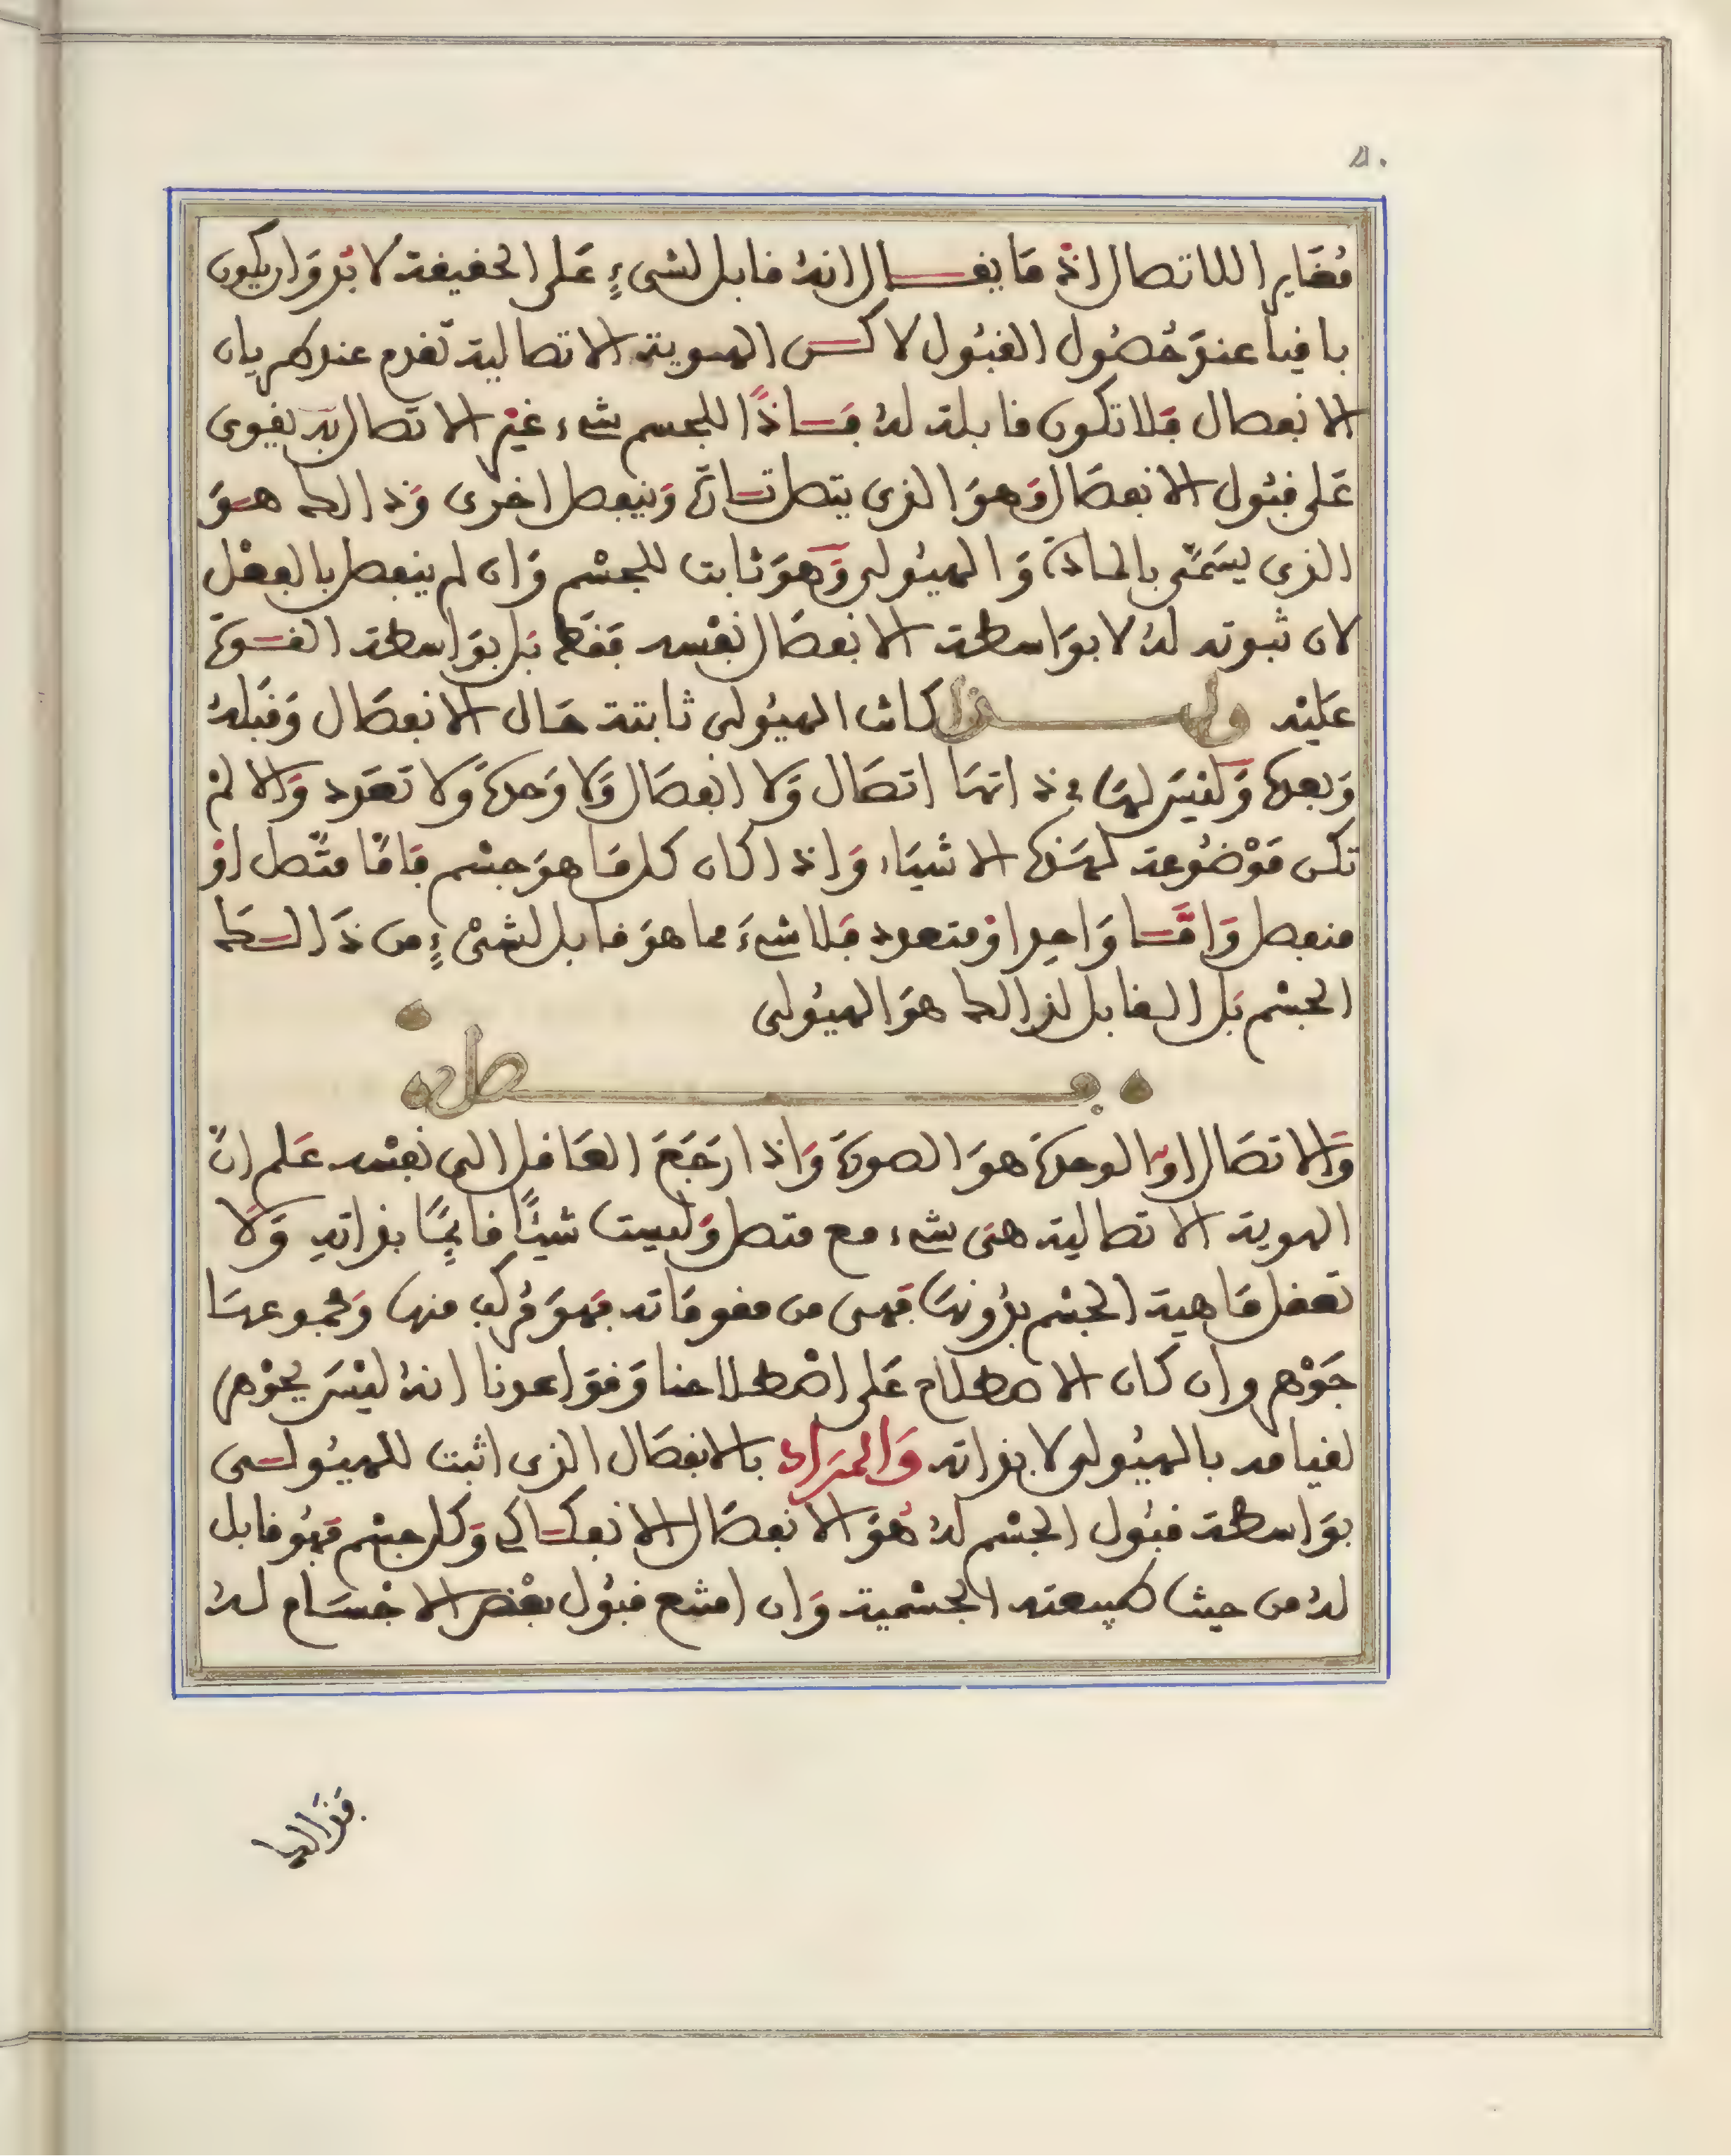 مُغَايرا للاتصال اذ مَا يقال انهُ قابل لشيءٍ عَلى الحقيقة لا بُد وَان يكون
باقيا عند حُصُول القبُول لاكن الهوية الاتصالية تقدم عند طريان
الانفصال فَلا تكون قابلة لهُ فَاذًا للجسم شيء غيْر الاتصال به يقوى
عَلى قبُول الانفصَال وَهوَ الذي يتصل تارَة وَينفصل اخرى وَذالك هوَ
الذي يسَمَّى بالمادة وَالهيُولى وَهوَ ثابت للجسْم وَان لم ينفصل بالفعْل
لان ثبوته لهُ لا بوَاسطة الانفصَال نفْسه فقَط بَل بوَاسطة القوة
عَليْه ولذا كانت الهيُولى ثابتة حَال الانفصَال وَقبَلهُ
وَبعدهُ وَليْسَ لهَا في ذاتهَا اتصَال وَلا انفصَال وَلا وَحدة وَلا تعَدد وَالا لمْ
تكن مَوْضُوعة لهَذه الاشيَاء وَاذا كان كل مَا هوَ جسْم فَامَّا متَّصل اوْ
منفصل وَامَّا وَاحد اوْ متعدد فَلا شيءَ مما هوَ قابل لشيْءٍ من ذَالك
الجسْم بَل القابل لذالك هوَ الهيُولى
فصل
وَالاتصَال او الوحدة هوَ الصورة وَاذا رجَعَ العَاقل الى نفْسه عَلم انَّ
الهوية الاتصالية هىَ شيء مع متصل وَليست شيئًا قائمًا بذاتهِ وَلا
تعقل مَاهية الجسْم بدُونهَا فَهي من مقومَاته فهوَ مُركب منها وَمجموعهَا
جَوْهر وان كان الاصطلاح عَلى اصْطلاحنا وَقوَاعدنا انهُ ليْسَ بجَوْهر
لقيامه بالهيُولى لا بذاته وَالمرَاد بالانفصَال الذي اثبت للهيُولى
بوَاسطة قبُول الجسْم لهُ هُوَ الانفصَال الانفكاكي وَكل جسْم فهُو قابل
لهُ من حيث طبيعته الجسْمية وَان امتنع قبُول بعْض الاجْسَام لهُ
فَذالك